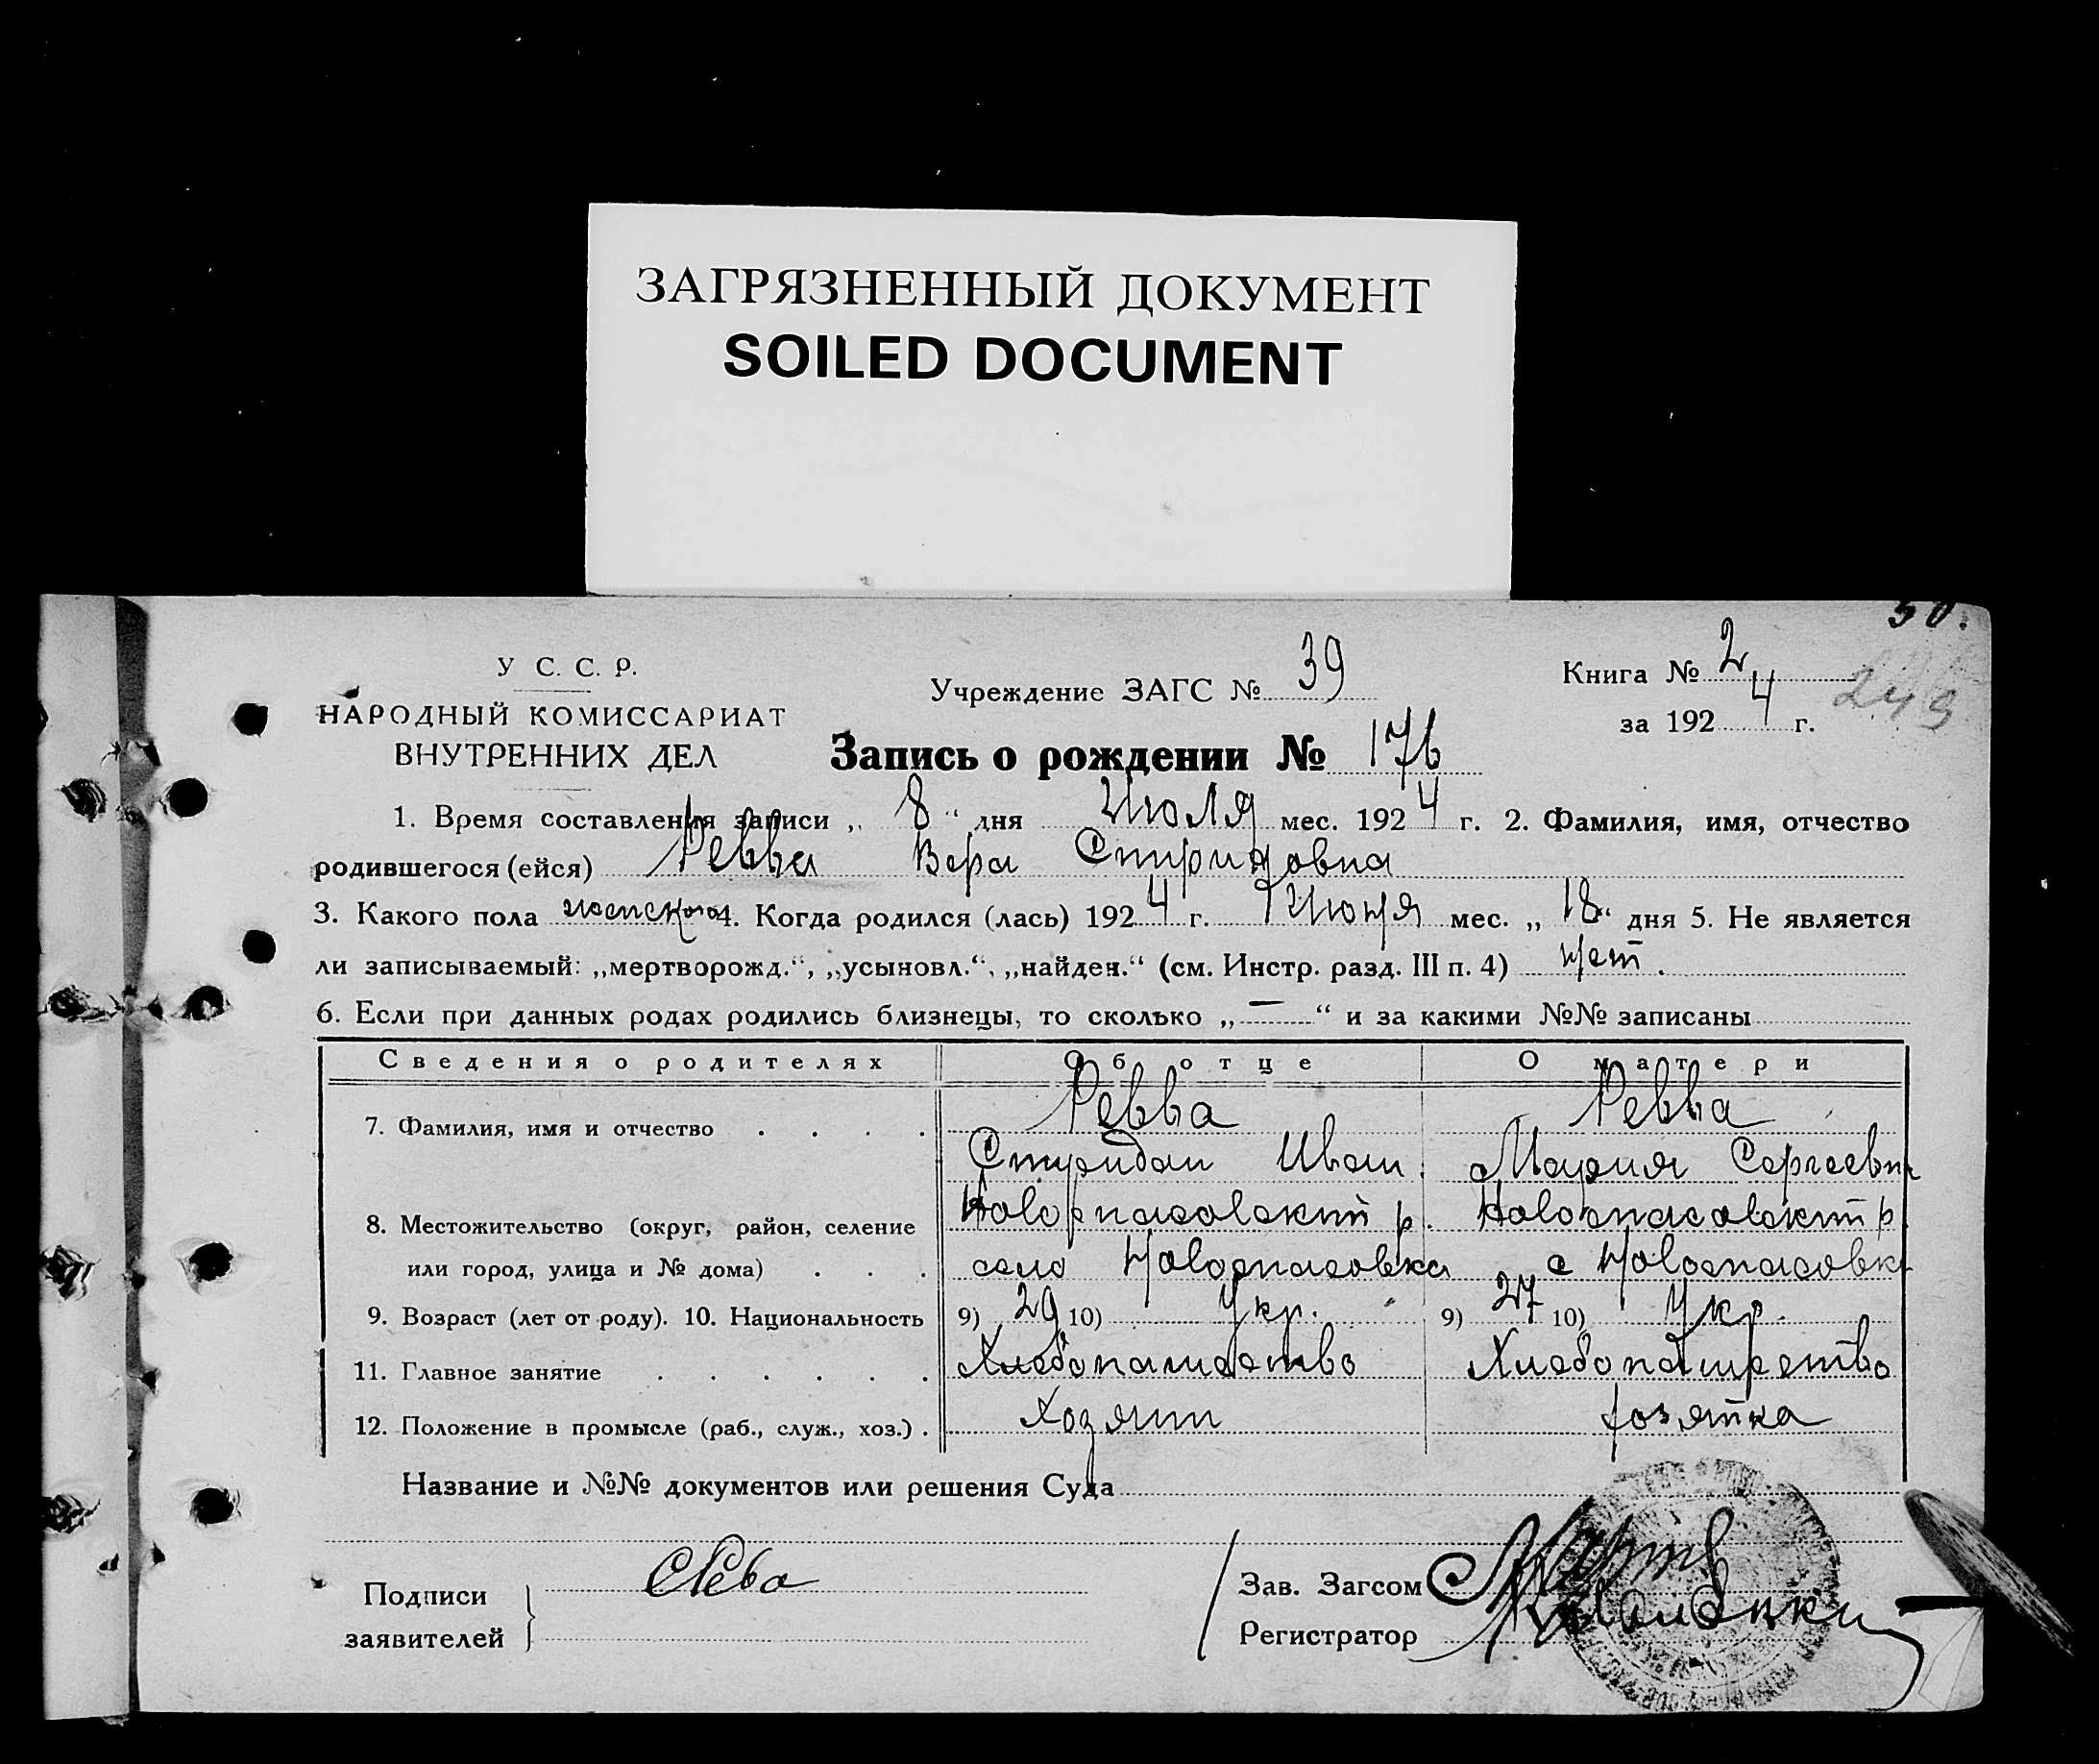 ЗАГРЯЗНЕННЫЙ ДОКУМЕНТ
SOILED DOCUMENT
50.
У С. С. Р.
НАРОДНЫЙ КОМИССАРИАТ
ВНУТРЕННИХ ДЕЛ
Учреждение ЗАГС № 39
Книга № 2
за 1924 г.
249
Запись о рождении № 176
1. Время составления записи „ 8 “ дня Июля мес. 1924 г. 2. Фамилия, имя, отчество
родившегося (ейся) Ревва Вера Спиридовна
3. Какого пола женского 4. Когда родился (лась) 1924 г. Июня мес. „ 18 “ дня 5. Не является
ли записываемый: „мертворожд.“, „усыновл.“, „найден.“ (см. Инстр. разд. III п. 4) нет.
6. Если при данных родах родились близнецы, то сколько „ — “ и за какими №№ записаны
Сведения о родителях Об отце О матери
7. Фамилия, имя и отчество Ревва Ревва
Спиридон Иван. Мария Сергеевн
8. Местожительство (округ, район, селение Новоспасовский р. Новоспасовский р
или город, улица и № дома) село Новоспасовка с Новоспасовк
9. Возраст (лет от роду). 10. Национальность 9) 29 10) Укр. 9) 27 10) Укр.
11. Главное занятие Хлебопашество Хлебопашество
12. Положение в промысле (раб., служ., хоз.) . Хозяин хозяйка
Название и №№ документов или решения Суда
Подписи
заявителей
СРева
Зав. Загсом
Регистратор